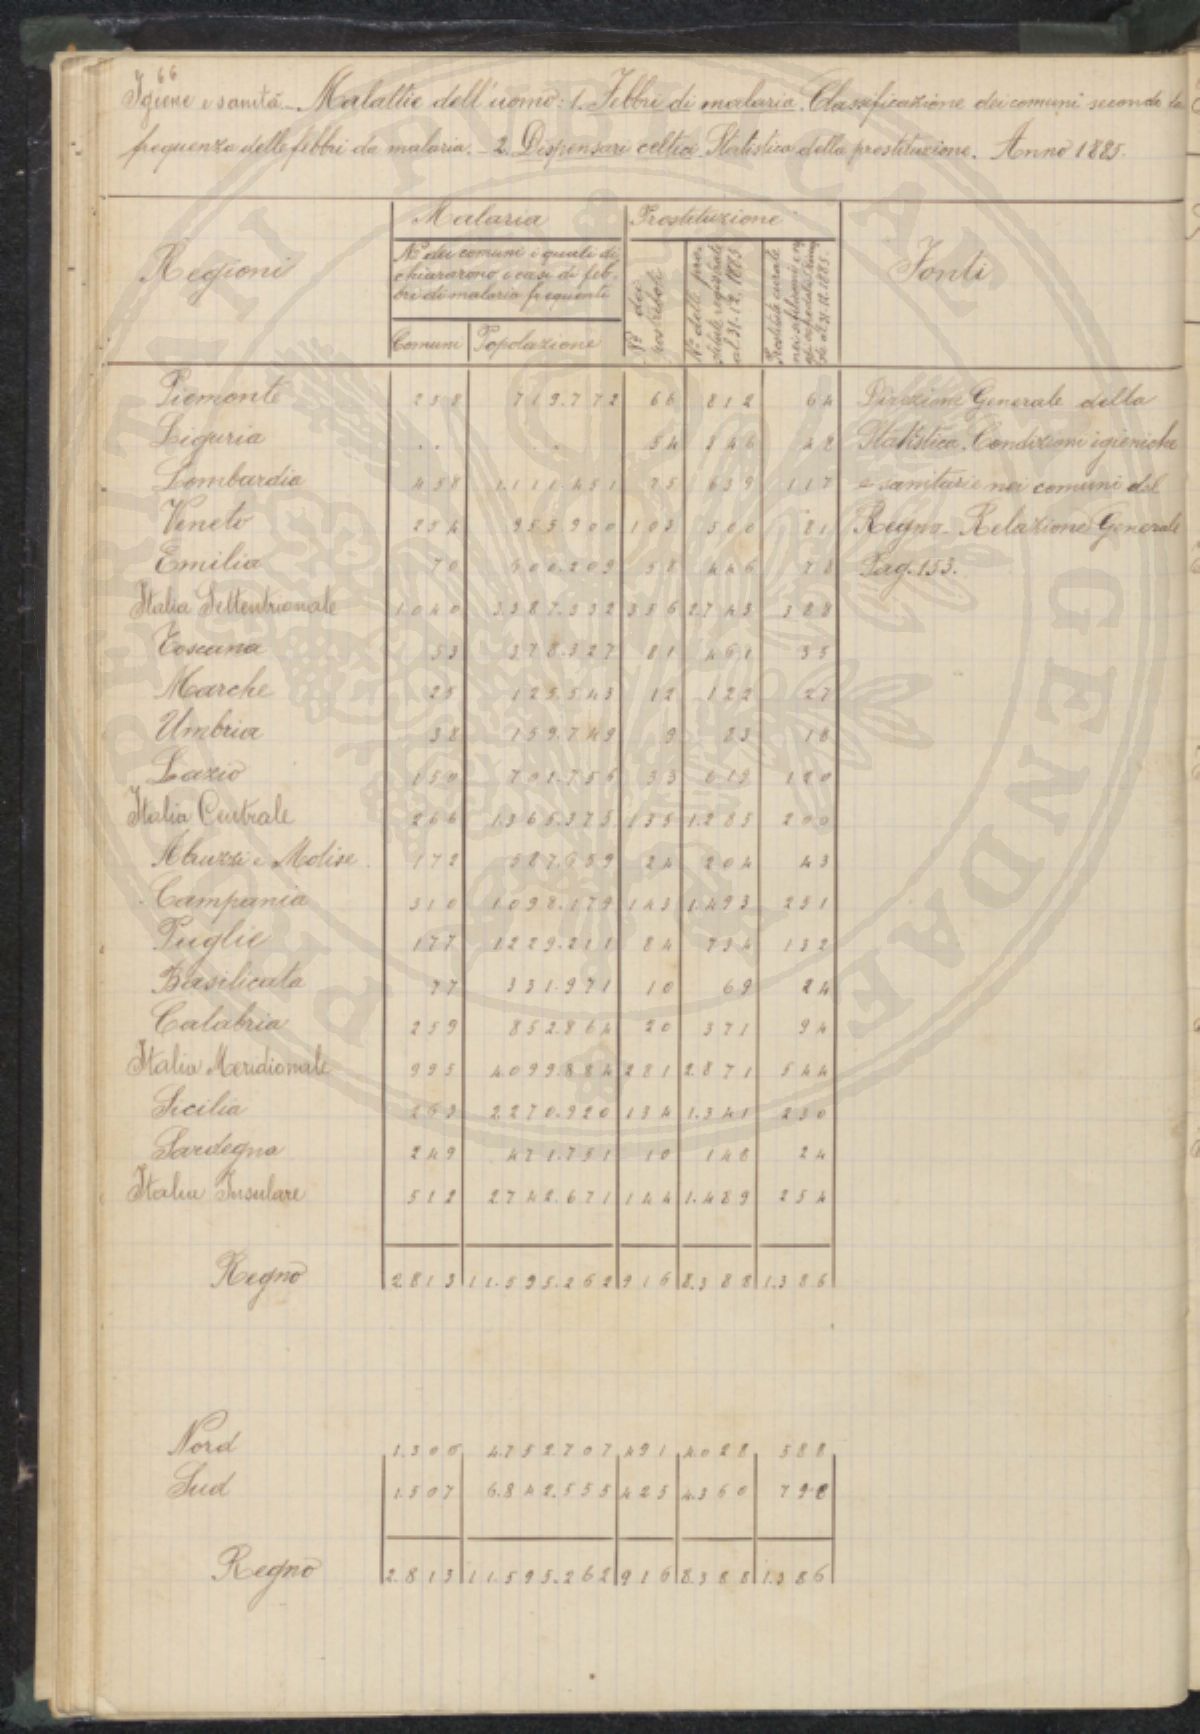 66
Igiene e sanità. Malattie dell'uomo: 1. Febbri di malaria. Classificazione dei comuni secondo la
frequenza delle febbri da malaria. - 2. Dispensari celtici. Statistica della prostituzione. Anno 1885.
Regioni
Malaria
Prostituzione
Fonti
No dei comuni i quali di
chiararono i casi di feb-
bri di malaria frequenti
Comuni Popolazione
No dei postriboli
No delle pro-
stitute registrate
al 31.12.1885
Prostitute curate
al 31.12.1885.
Piemonte 258 719.772 66 812 64
Liguria .. .. 54 346 48
Lombardia 458 1.111.451 75 639 117
Veneto 254 955.900 103 500 81
Emilia 70 600.209 58 446 78
Italia Settentrionale 1040 3387.332 356 2743 388
Toscana 53 378.327 81 461 35
Marche 25 125.543 12 122 27
Umbria 38 159.749 9 83 18
Lazio 150 701.756 33 619 120
Italia Centrale 266 1.365.375 135 1.285 200
Abruzzi e Molise 172 587.659 24 204 43
Campania 310 1.098.179 143 1.493 251
Puglie 177 1229.211 84 734 132
Basilicata 77 331.971 10 69 24
Calabria 259 852.864 20 371 94
Italia Meridionale 995 4.099.884 281 2.871 544
Sicilia 263 2270.920 134 1.341 230
Sardegna 249 471.751 10 148 24
Italia Insulare 512 2742.671 144 1.489 254
Regno 2813 11.595.262 916 8.388 1.386
Direzione Generale della
Statistica. Condizioni igieniche
e sanitarie nei comuni del
Regno - Relazione Generale
Pag. 153.
Nord 1.306 4.752707 491 4.028 588
Sud 1.507 6.842.555 425 4.360 798
Regno 2.813 11.595.262 916 8.388 1.386